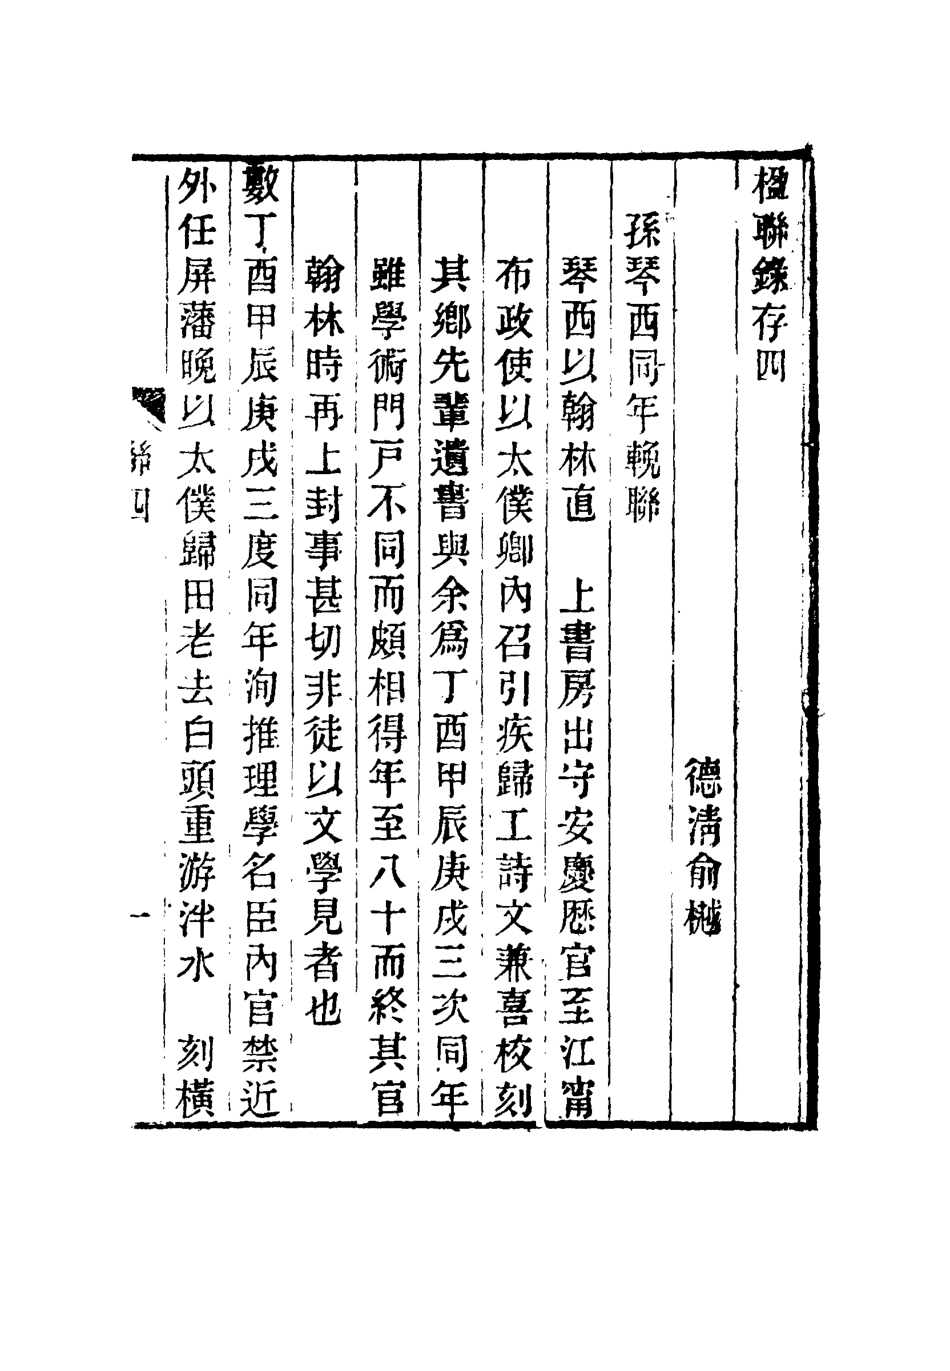 楹聯錄存四
德淸俞樾
孫琴西同年輓聯
琴西以翰林直　上書房出守安慶歷官至江甯
布政使以太僕卿內召引疾歸工詩文兼喜校刻
其鄉先輩遺書與余爲丁酉甲辰庚戌三次同年
雖學術門戸不同而頗相得年至八十而終其官
翰林時再上封事甚切非徒以文學見者也
數丁酉甲辰庚戌三度同年洵推理學名臣內官禁近
外任屏藩晚以太僕歸田老去白頭重游泮水　刻橫
聯四
一